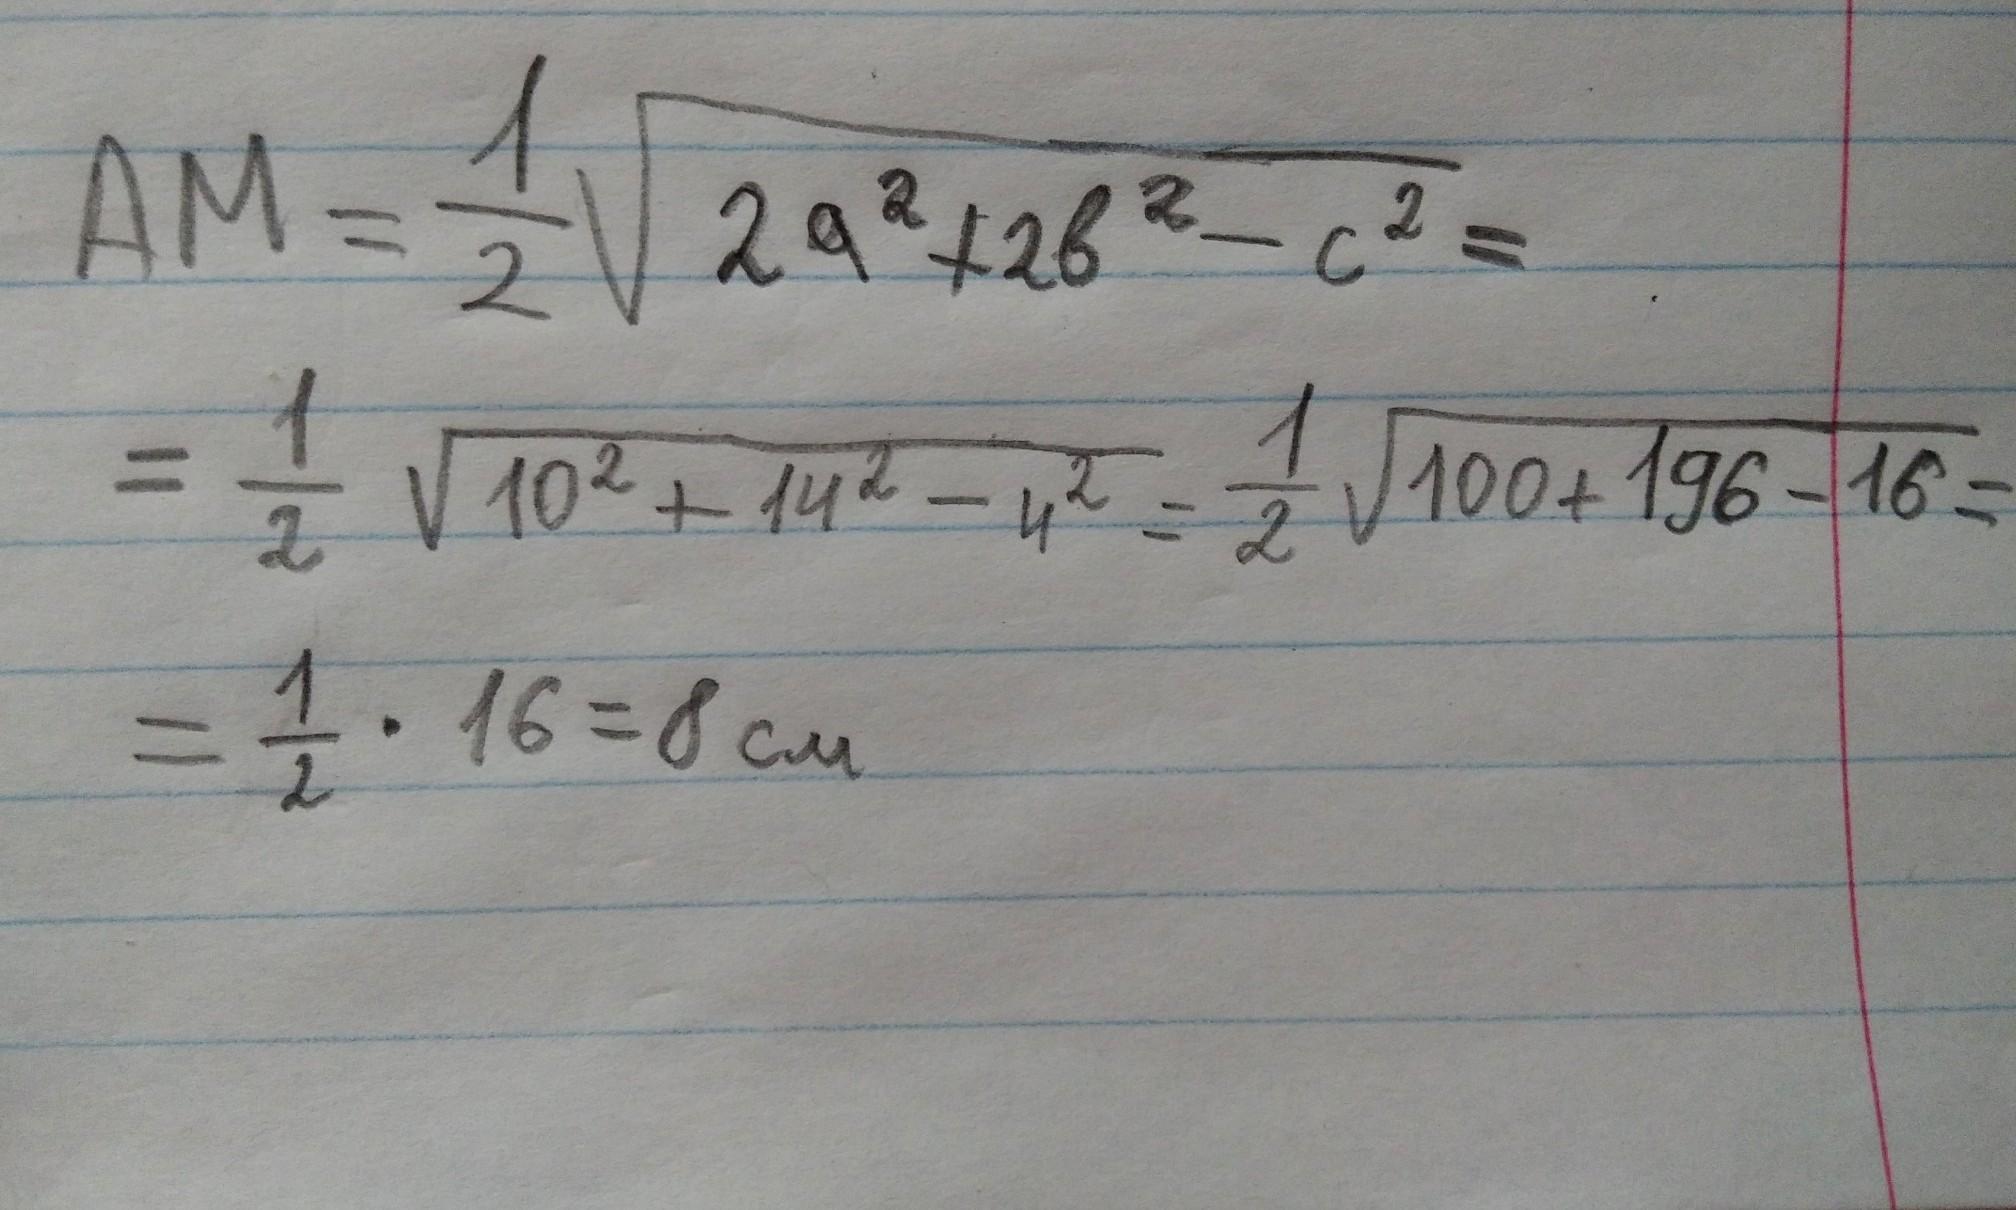 AM = 1/2 √(2a² + 2b² − c²) =
= 1/2 √(10² + 14² − 4²) = 1/2 √(100 + 196 − 16) =
= 1/2 · 16 = 8 см